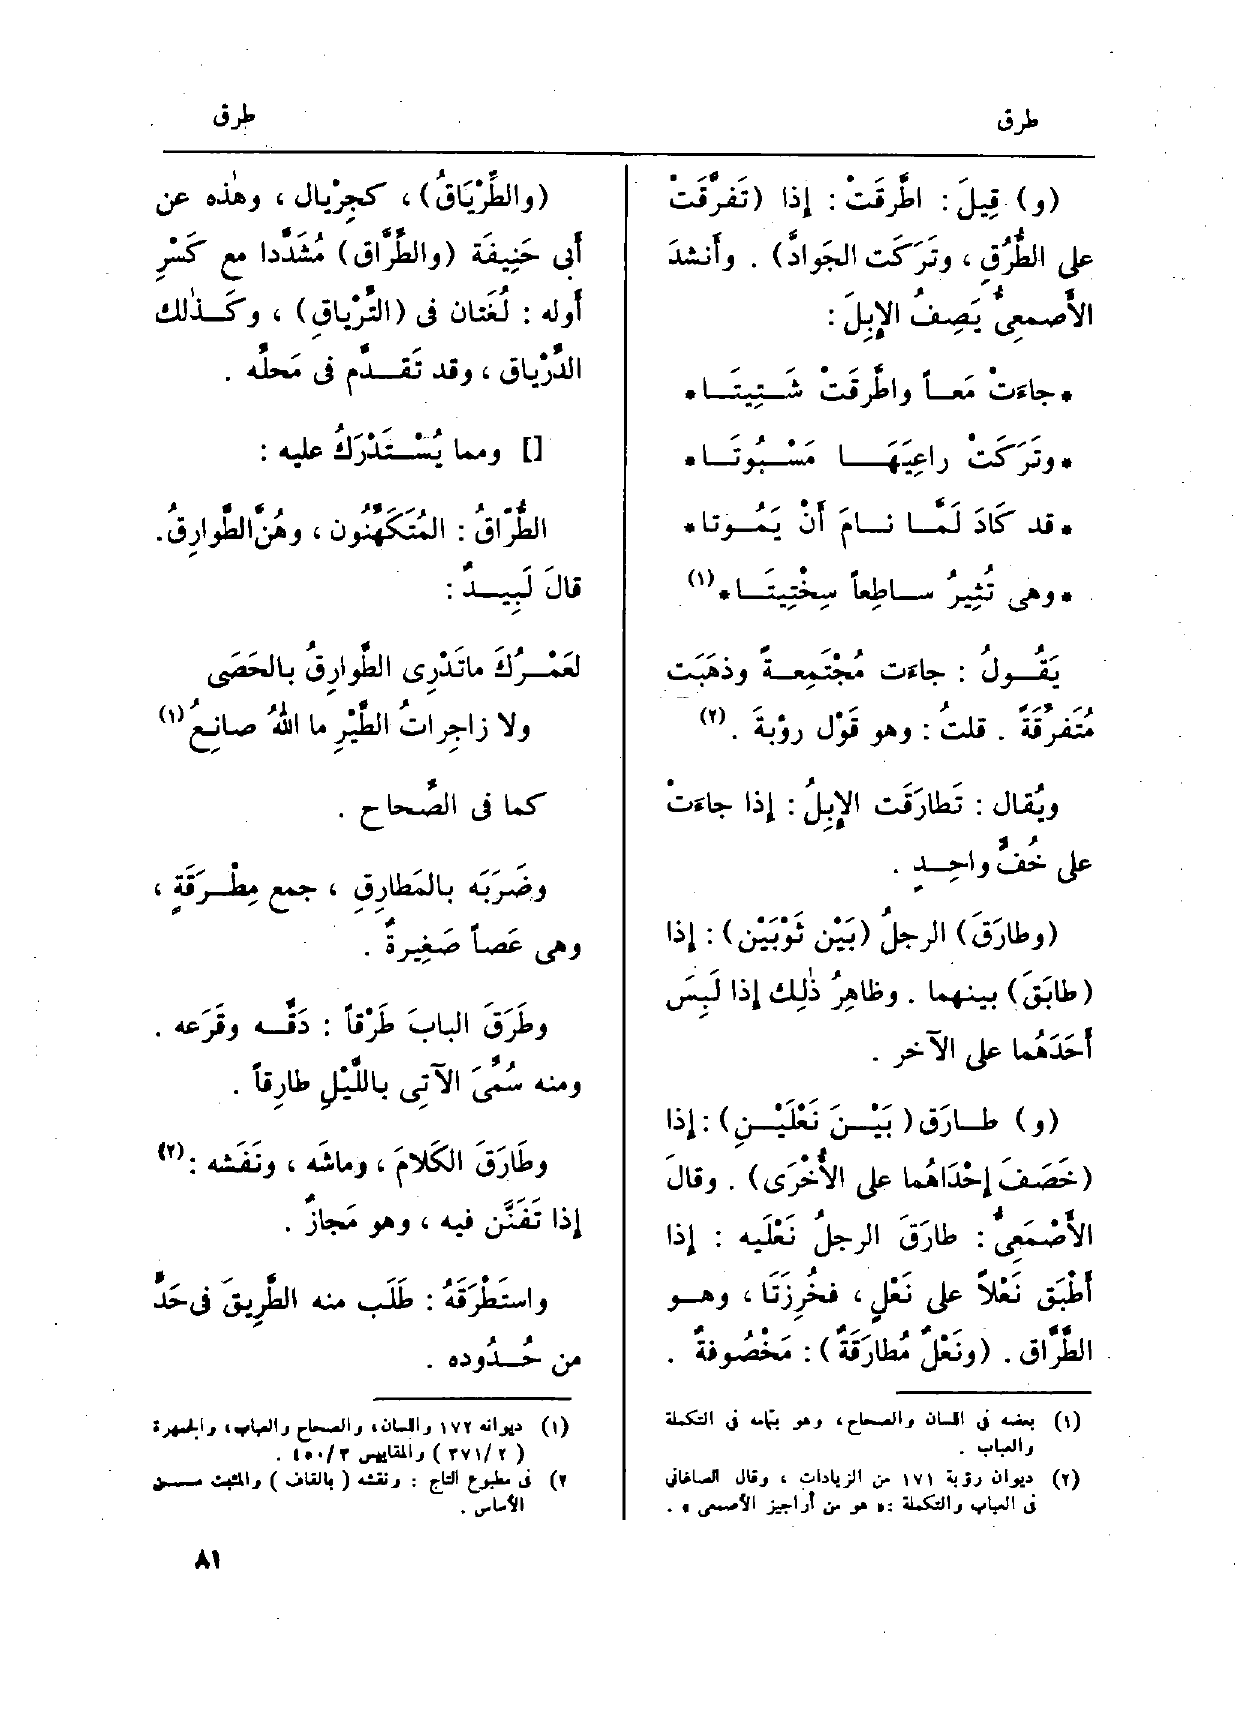 طرق
طرق
(و) قِيلَ : اطَّرقَتْ : إذا (تَفَرَّقَتْ
على الطُّرُقِ ، وتَرَكَت الجَوادَّ) . وأَنشدَ
الأَصمعِىُّ يَصِفُ الإِبِلَ :
* جاءَتْ مَعــاً واطَّرقَتْ شَــتِيتَــا *
* وتَرَكَتْ راعِيَهَـــا مَسْــبُوتَــا *
* قد كَادَ لَمَّــا نــامَ أَنْ يَمُــوتا *
* وهى تُثِيرُ ســاطِعاً سِخْتِيتَــا * (١)
يَقُــولُ : جاءَت مُجْتَمِعــةً وذهَبَت
مُتَفرِّقَةً . قلتُ : وهو قَوْل رؤبةَ . (٢)
ويُقال : تَطارَقَت الإِبِلُ : إذا جاءَتْ
على خُفٍّ واحِــدٍ .
(وطارَقَ) الرجلُ (بَيْن ثَوْبَيْن) : إذا
(طابَقَ) بينهما . وظاهِرُ ذٰلِك إذا لَبِسَ
أَحَدَهُما على الآخر .
(و) طــارَق (بَيْــنَ نَعْلَيْــنِ) : إذا
(خَصَفَ إحْدَاهُما على الأُخْرَى) . وقالَ
الأَصْمَعِىُّ : طارَقَ الرجلُ نَعْلَيه : إذا
أَطْبَق نَعْلاً على نَعْلٍ ، فخُرِزَتَا ، وهــو
الطِّرَاق . (ونَعْلٌ مُطارَقَةٌ) : مَخْصُوفةٌ .
(١) بعضه فى اللسان والصحاح ، وهو بتمامه فى التكملة
والعباب .
(٢) ديوان رؤبة ١٧١ من الزيادات ، وقال الصاغانى
فى العباب والتكملة : « هو من أراجيز الأصمعى » .
(والطِّرْيَاقُ) ، كجِرْيال ، وهٰذه عن
أَبى حَنِيفَة (والطِّرَّاق) مُشَدَّدا مع كَسْرِ
أوله : لُغَتان فى (التِّرْياقِ) ، وكَــذٰلك
الدِّرْياق ، وقد تَقَــدَّم فى مَحلّه .
[] ومما يُسْــتَدْرَكُ عليه :
الطُّرَّاقُ : المُتَكَهِّنُون ، وهُنَّ الطَّوارِقُ .
قالَ لَبِيــدٌ :
لعَمْــرُكَ ماتَدْرِى الطَّوارِقُ بالحَصَى
ولا زاجِراتُ الطَّيْرِ ما اللهُ صانِعُ (١)
كما فى الصِّحاح .
وضَرَبَه بالمَطارِقِ ، جمع مِطْــرَقَةٍ ،
وهى عَصاً صَغِيرةٌ .
وطَرَقَ البابَ طَرْقاً : دَقَّــه وقَرَعه .
ومنه سُمِّىَ الآتِى باللَّيْلِ طارِقاً .
وطَارَقَ الكَلامَ ، وماشَه ، ونَفَشه : (٢)
إذا تَفَنَّن فيه ، وهو مَجازٌ .
واستَطْرَقَهُ : طَلَب منه الطَّرِيقَ فى حَدٍّ
من حُــدُوده .
(١) ديوانه ١٧٢ واللسان ، والصحاح والعباب ، والجمهرة
(٢ / ٣٧١) والمقاييس ٣ / ٤٥٠ .
٢) فى مطبوع التاج : ونقشه ( بالقاف ) والمثبت مــن
الأساس .
٨١